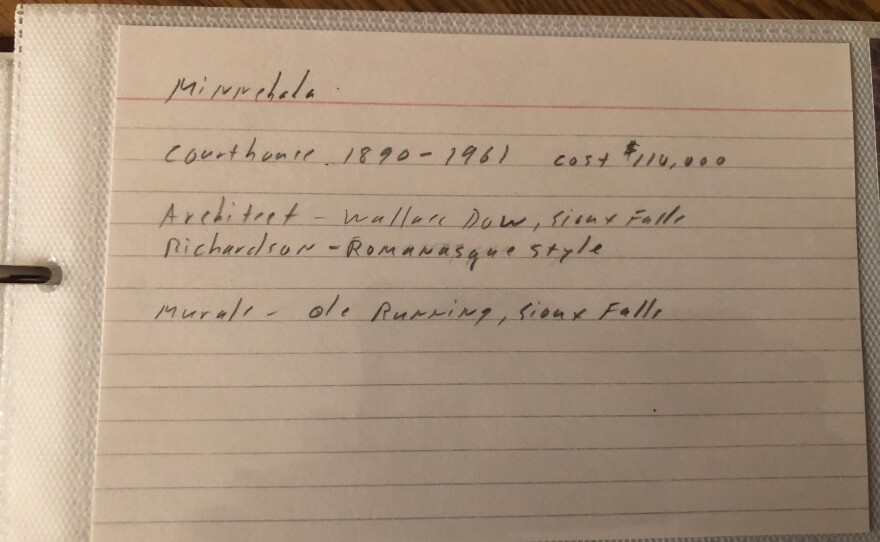 Minnehaha
Courthouse 1890-1961 cost $110,000
Architect - Wallace Dow, Sioux Falls
Richardson - Romanasque style
Murals - Ole Running, Sioux Falls